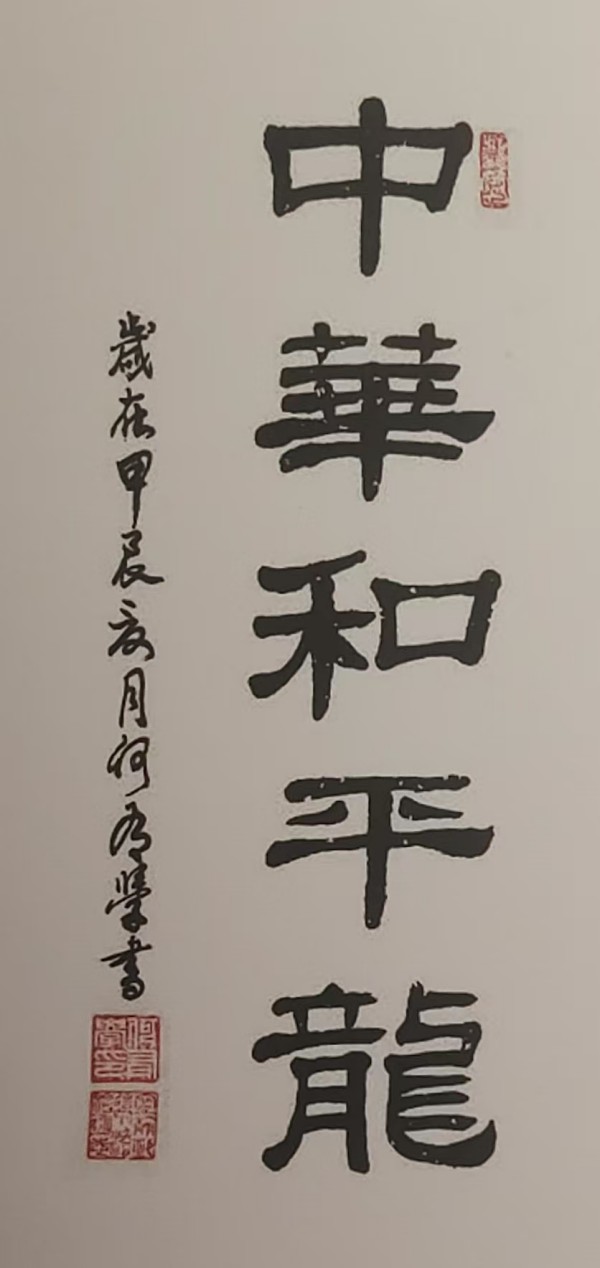 中華和平龍
歲在甲辰亥月何有學書